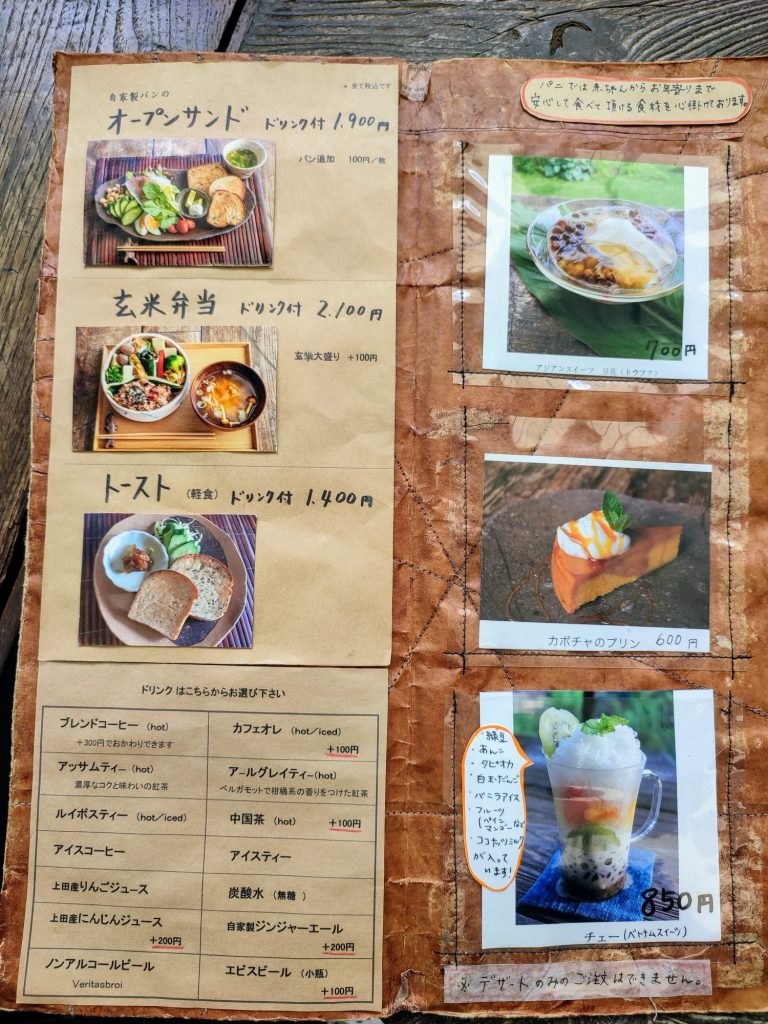 ＊ 全て税込です
自家製パンの
オープンサンド ドリンク付 1.900円
パン追加 100円／枚
玄米弁当 ドリンク付 2.100円
玄米大盛り +100円
トースト （軽食） ドリンク付 1.400円
ドリンク はこちらからお選び下さい
ブレンドコーヒー （hot）
+300円でおかわりできます
カフェオレ （hot／iced）
+100円
アッサムティー（hot）
濃厚なコクと味わいの紅茶
アールグレイティー（hot）
ベルガモットで柑橘系の香りをつけた紅茶
ルイボスティー （hot／iced）
中国茶 （hot） +100円
アイスコーヒー
アイスティー
上田産りんごジュース
炭酸水 （無糖 ）
上田産にんじんジュース
+200円
自家製ジンジャーエール
+200円
ノンアルコールビール
Veritasbroi
エビスビール （小瓶）
+100円
パニでは赤ちゃんからお年寄りまで
安心して食べて頂ける食材を心掛けております。
700円
アジアンスイーツ 豆花（トウファ）
カボチャのプリン 600円
・緑豆
・あんこ
・タピオカ
・白玉だんご
・バニラアイス
・フルーツ
マンゴーなど
・ココナッツミルク
が入って
います！
850円
チェー（ベトナムスイーツ）
※ デザートのみのご注文はできません。